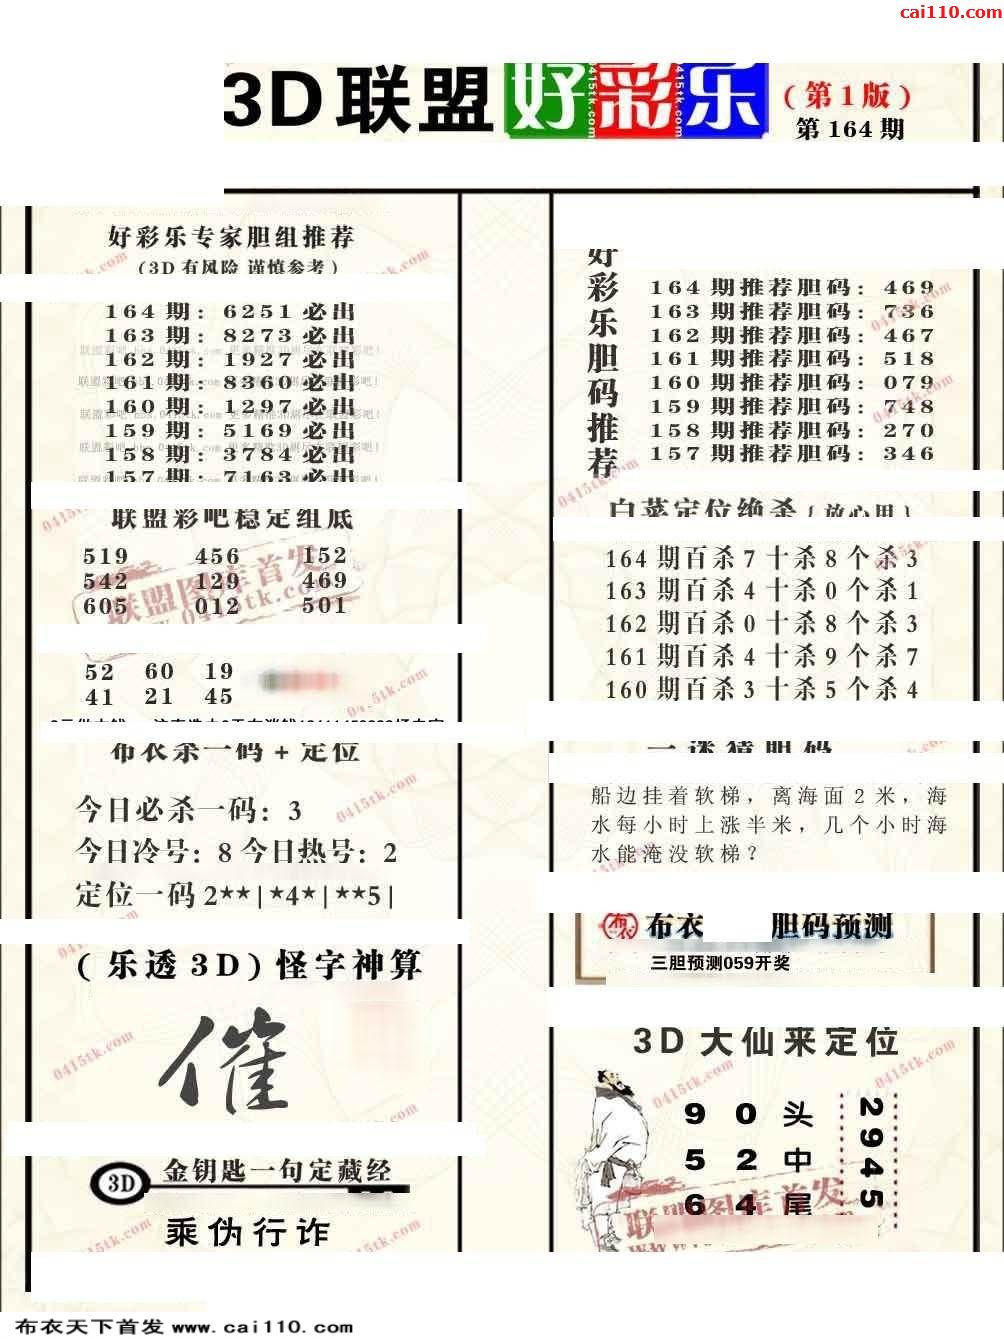 cai110.com
3D联盟好彩乐
(第1版)
第164期
好彩乐专家胆组推荐
(3D有风险 谨慎参考)
164期: 6251必出
163期: 8273必出
162期: 1927必出
161期: 8360必出
160期: 1297必出
159期: 5169必出
158期: 3784必出
157期: 7163必出
联盟彩吧稳定组底
519 456 152
542 129 469
605 012 501
52 60 19
41 21 45
布衣杀一码+定位
今日必杀一码: 3
今日冷号: 8 今日热号: 2
定位一码 2**|*4*|**5|
(乐透3D)怪字神算
催
3D 金钥匙一句定藏经
乘伪行诈
好彩乐胆码推荐
164期推荐胆码: 469
163期推荐胆码: 736
162期推荐胆码: 467
161期推荐胆码: 518
160期推荐胆码: 079
159期推荐胆码: 748
158期推荐胆码: 270
157期推荐胆码: 346
白菜定位绝杀{放心用}
164期百杀7十杀8个杀3
163期百杀4十杀0个杀1
162期百杀0十杀8个杀3
161期百杀4十杀9个杀7
160期百杀3十杀5个杀4
一谜猜胆码
船边挂着软梯，离海面2米，海
水每小时上涨半米，几个小时海
水能淹没软梯？
布衣 胆码预测
三胆预测059开奖
3D大仙来定位
9 0 头
5 2 中
6 4 尾
2945
联盟图库首发
布衣天下首发 www.cai110.com